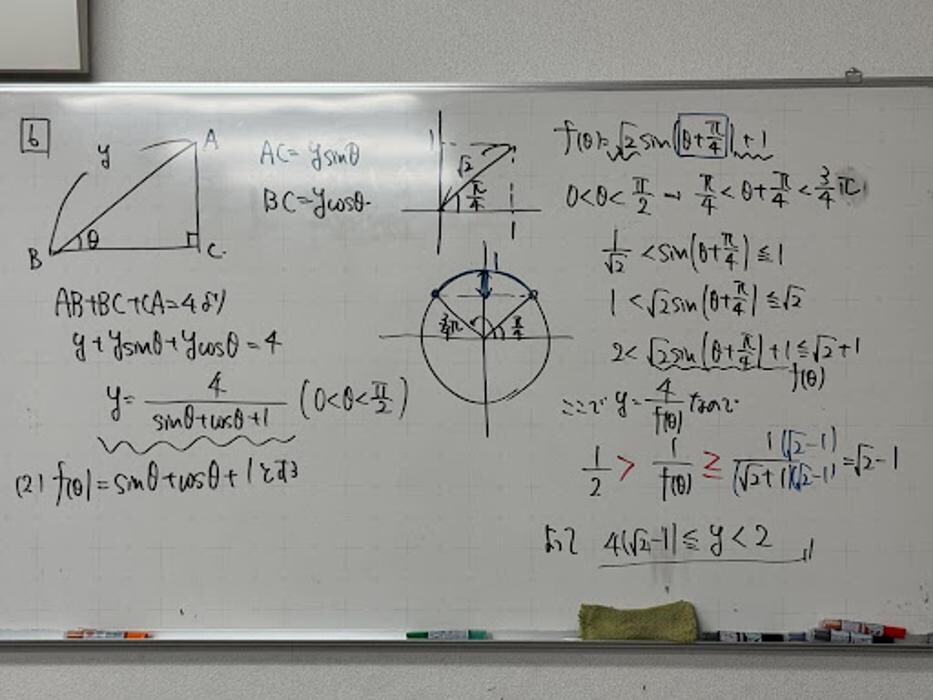 6
y
A
B
θ
C
AC = y sinθ
BC = y cosθ
AB+BC+CA=4より
y + y sinθ + y cosθ = 4
y = 4/(sinθ+cosθ+1) (0<θ<π/2)
(2) f(θ) = sinθ + cosθ + 1とする
1
√2
π/4
1
1
3/4π
π/4
f(θ) = √2 sin(θ+π/4)+1
0<θ<π/2 → π/4<θ+π/4<3/4π
1/√2 < sin(θ+π/4) ≦ 1
1 < √2 sin(θ+π/4) ≦ √2
2 < √2 sin(θ+π/4)+1 ≦ √2+1
f(θ)
ここで y = 4/f(θ) なので
1/2 > 1/f(θ) ≧ 1(√2-1)/(√2+1)(√2-1) = √2-1
よって 4(√2-1) ≦ y < 2